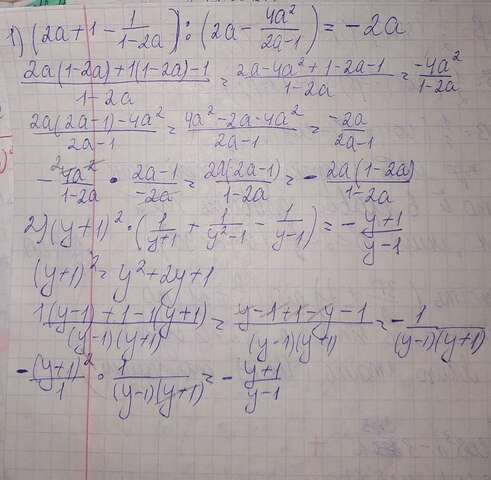 1) (2a+1 - 1/(1-2a)) : (2a - 4a²/(2a-1)) = -2a
(2a(1-2a)+1(1-2a)-1)/(1-2a) = (2a-4a²+1-2a-1)/(1-2a) = (-4a²)/(1-2a)
(2a(2a-1)-4a²)/(2a-1) = (4a²-2a-4a²)/(2a-1) = (-2a)/(2a-1)
- 4a²/(1-2a) · (2a-1)/(-2a) = (2a(2a-1))/(1-2a) = - (2a(1-2a))/(1-2a)
2) (y+1)² · (1/(y+1) + 1/(y²-1) - 1/(y-1)) = - (y+1)/(y-1)
(y+1)² = y²+2y+1
(1(y-1)+1-1(y+1))/((y-1)(y+1)) = (y-1+1-y-1)/((y-1)(y+1)) = - 1/((y-1)(y+1))
- (y+1)²/1 · 1/((y-1)(y+1)) = - (y+1)/(y-1)